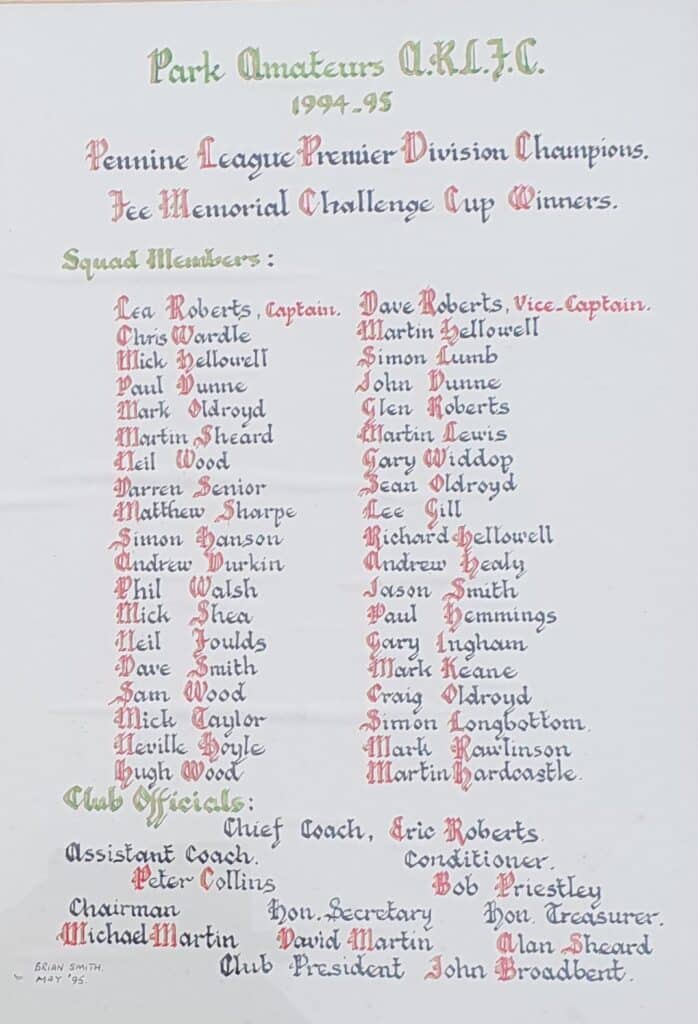 Park Amateurs A.R.L.F.C.
1994-95
Pennine League Premier Division Champions.
Fee Memorial Challenge Cup Winners.
Squad Members:
Lea Roberts, Captain. Dave Roberts, Vice-Captain.
Chris Wardle Martin Hellowell
Mick Hellowell Simon Lumb
Paul Dunne John Dunne
Mark Oldroyd Glen Roberts
Martin Sheard Martin Lewis
Neil Wood Gary Widdop
Darren Senior Sean Oldroyd
Matthew Sharpe Lee Gill
Simon Hanson Richard Hellowell
Andrew Durkin Andrew Healy
Phil Walsh Jason Smith
Mick Shea Paul Hemmings
Neil Foulds Gary Ingham
Dave Smith Mark Keane
Sam Wood Craig Oldroyd
Mick Taylor Simon Longbottom.
Neville Hoyle Mark Rawlinson
Hugh Wood Martin Hardcastle.
Club Officials:
Chief Coach, Eric Roberts.
Assistant Coach. Conditioner.
Peter Collins Bob Priestley
Chairman Hon. Secretary Hon. Treasurer.
Michael Martin David Martin Alan Sheard
Club President John Broadbent.
BRIAN SMITH.
MAY '95.